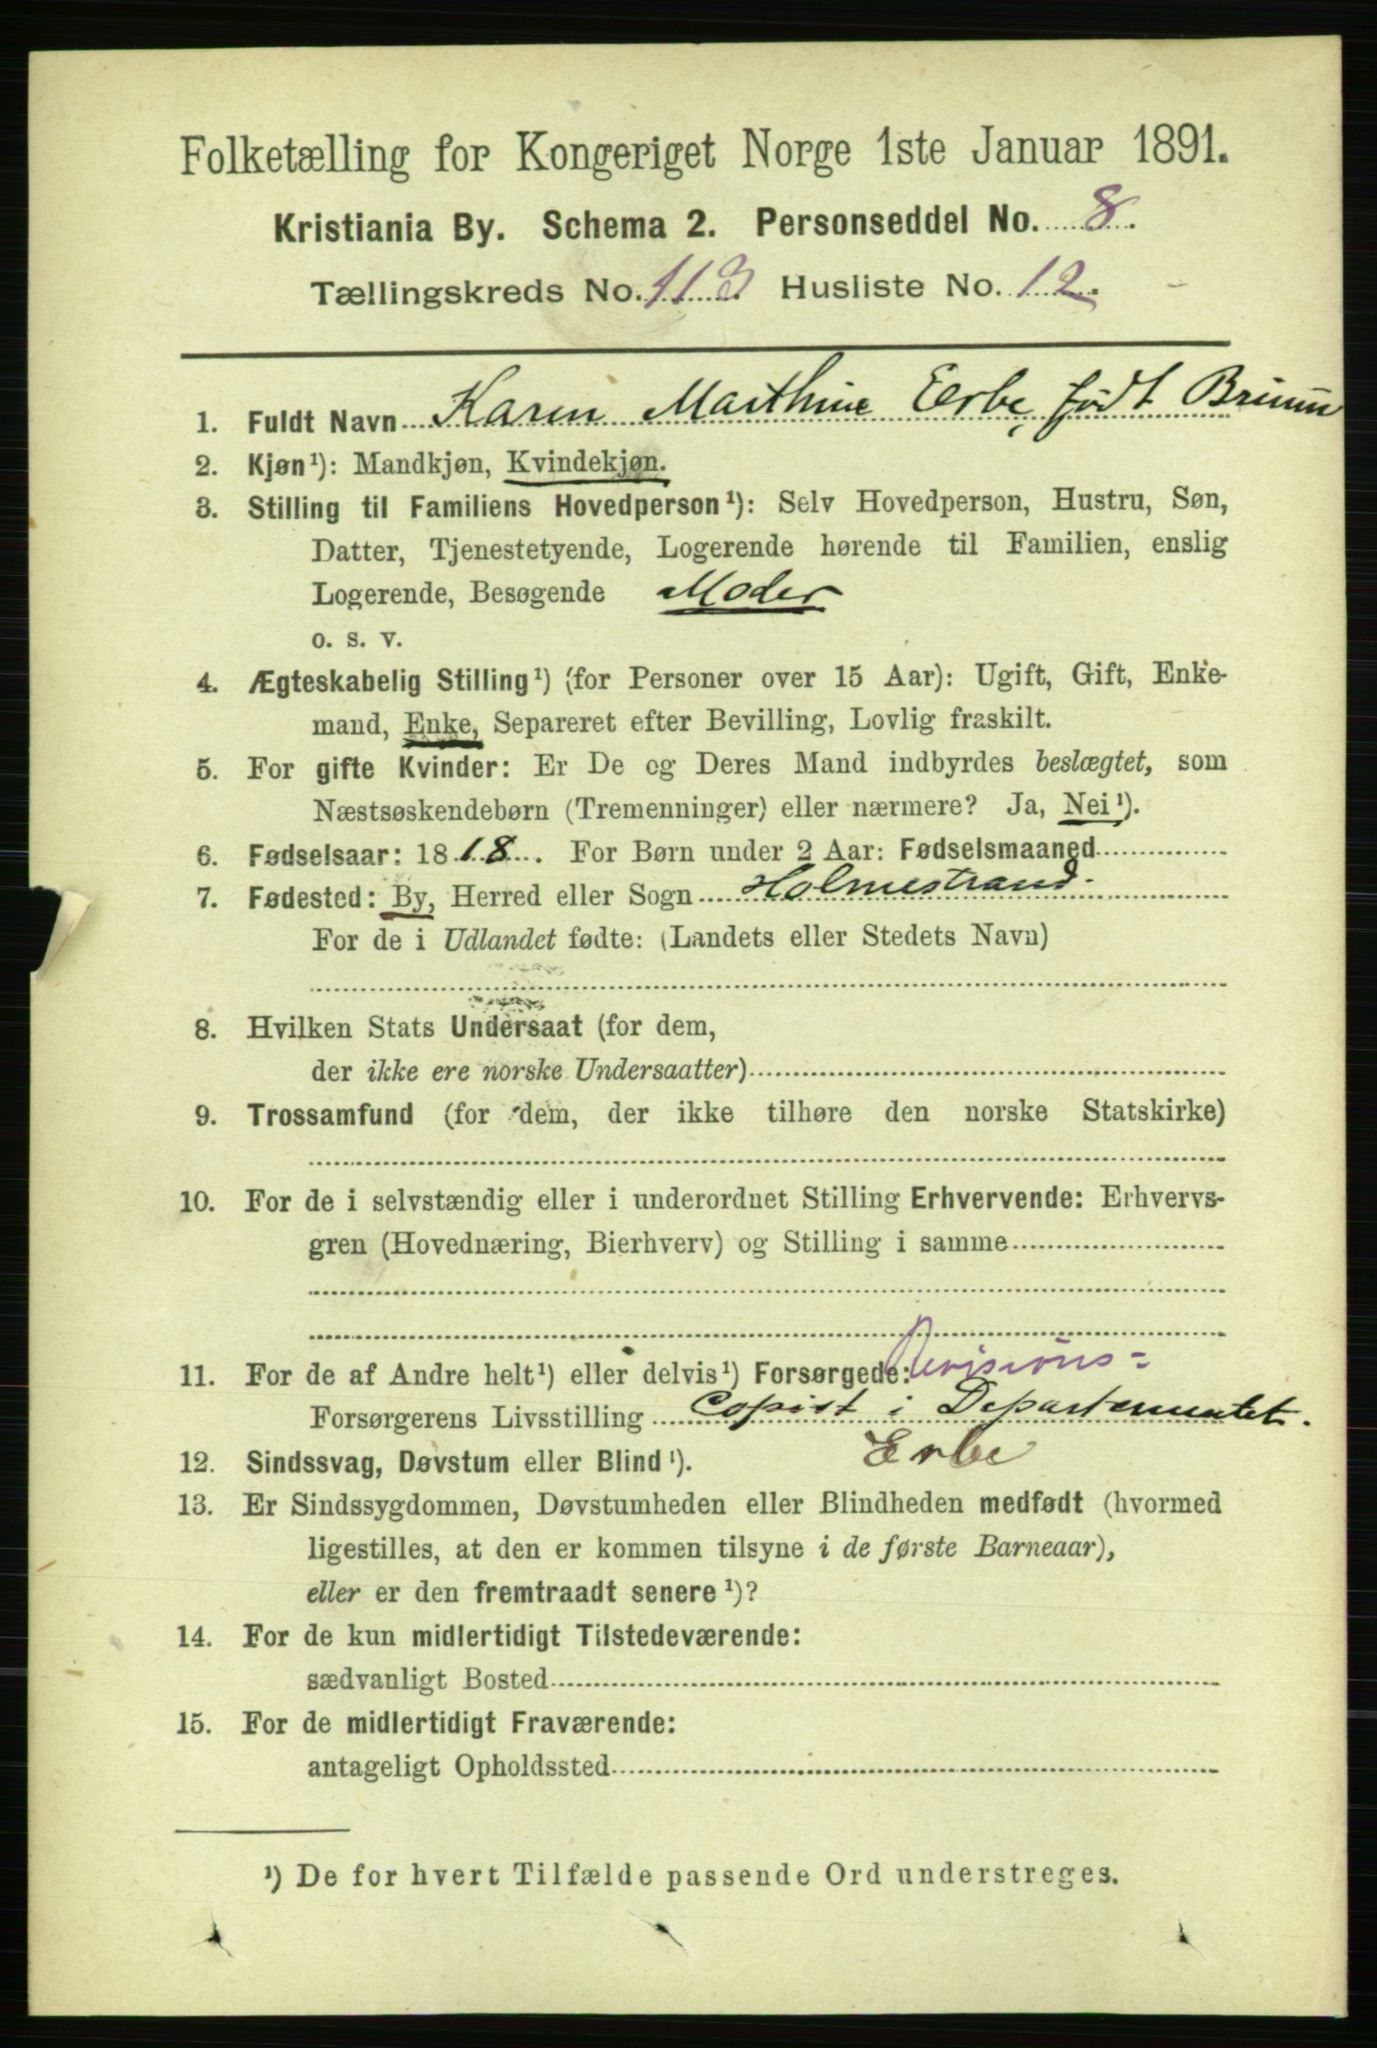 Folketælling for Kongeriget Norge 1ste Januar 1891.
Kristiania By. Schema 2. Personseddel No. 8.
Tællingskreds No. 113 Husliste No. 12.
1. Fuldt Navn Karen Marthine Erbe, født
2. Kjøn¹): Mandkjøn, Kvindekjøn.
3. Stilling til Familiens Hovedperson¹): Selv Hovedperson, Hustru, Søn,
Datter, Tjenestetyende, Logerende hørende til Familien, enslig
Logerende, Besøgende Moder
o. s. v.
4. Ægteskabelig Stilling¹) (for Personer over 15 Aar): Ugift, Gift, Enke-
mand, Enke, Separeret efter Bevilling, Lovlig fraskilt.
5. For gifte Kvinder: Er De og Deres Mand indbyrdes beslægtet, som
Næstsøskendebørn (Tremenninger) eller nærmere? Ja, Nei¹).
6. Fødselsaar: 1818. For Børn under 2 Aar: Fødselsmaaned
7. Fødested: By, Herred eller Sogn Holmestrand.
For de i Udlandet fødte: (Landets eller Stedets Navn)
8. Hvilken Stats Undersaat (for dem,
der ikke ere norske Undersaatter)
9. Trossamfund (for dem, der ikke tilhøre den norske Statskirke)
10. For de i selvstændig eller i underordnet Stilling Erhvervende: Erhvervs-
gren (Hovednæring, Bierhverv) og Stilling i samme
11. For de af Andre helt¹) eller delvis¹) Forsørgede: Revisions-
Forsørgerens Livsstilling Copist i Departementet.
12. Sindssvag, Døvstum eller Blind¹). Erbe
13. Er Sindssygdommen, Døvstumheden eller Blindheden medfødt (hvormed
ligestilles, at den er kommen tilsyne i de første Barneaar),
eller er den fremtraadt senere¹)?
14. For de kun midlertidigt Tilstedeværende:
sædvanligt Bosted
15. For de midlertidigt Fraværende:
antageligt Opholdssted
¹) De for hvert Tilfælde passende Ord understreges.